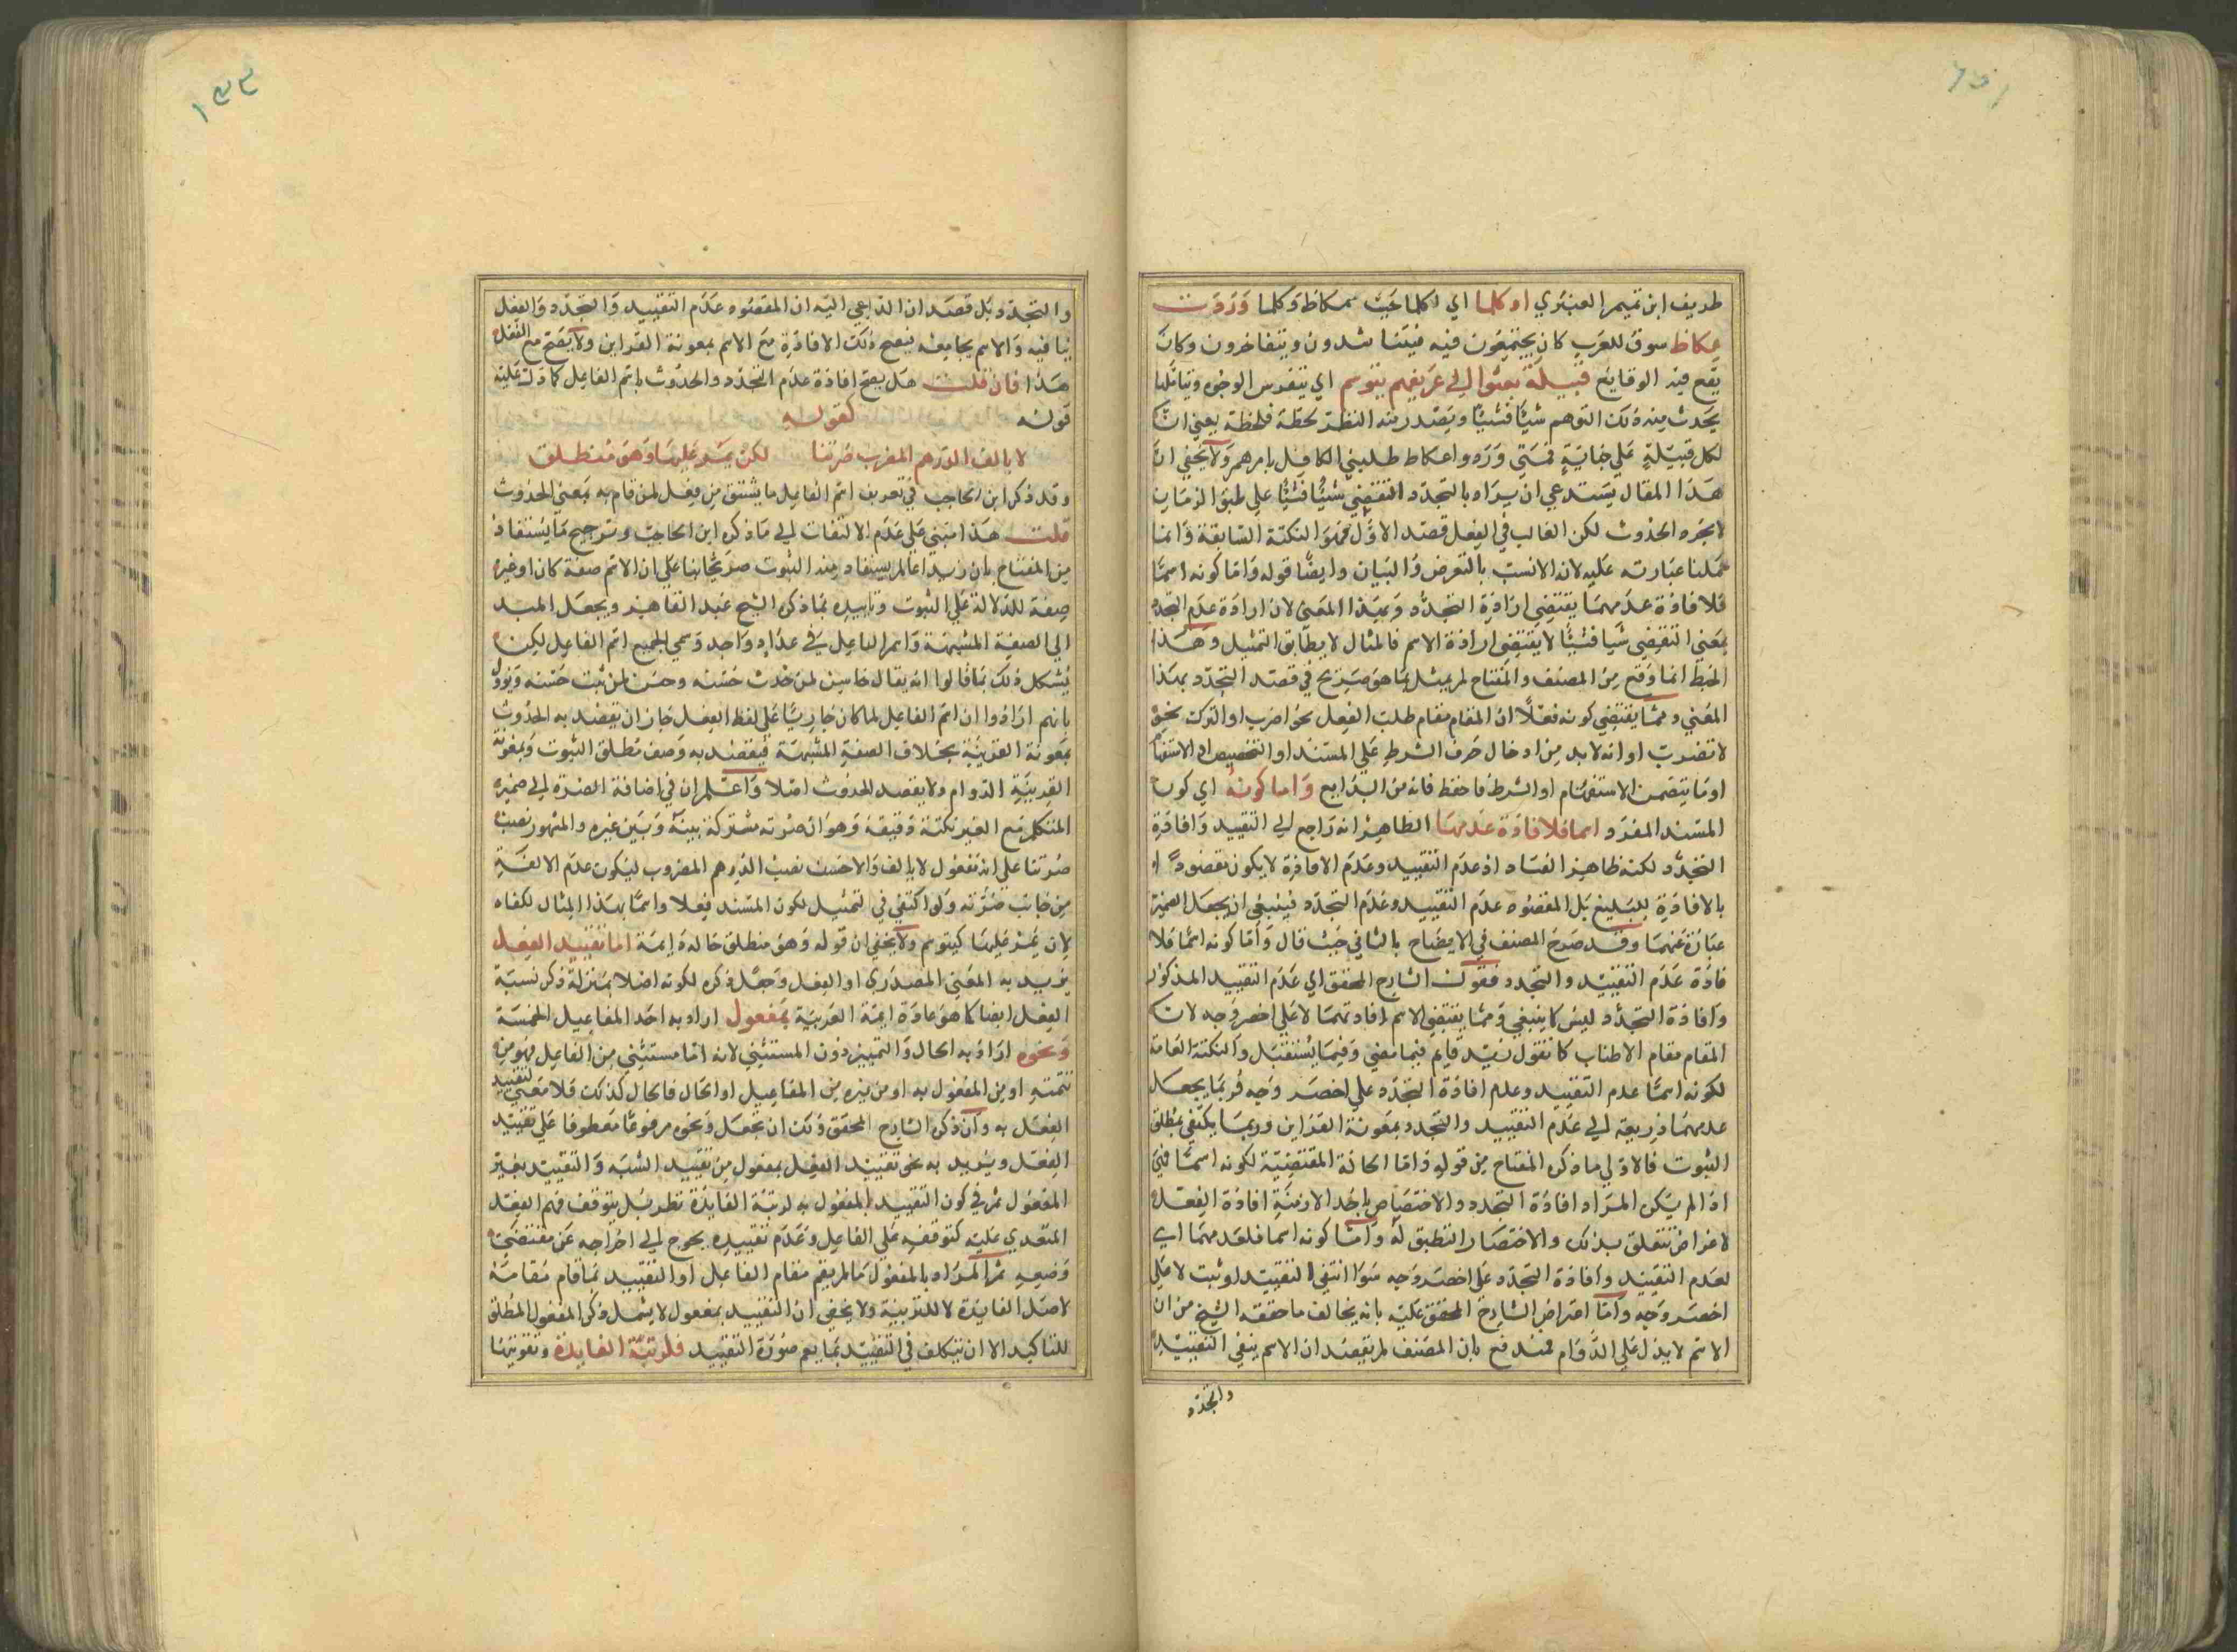 طريف ابن تميم العنبري او كلما اي اكلما غيث سمكاظ وكلما وردت
عكاظ سوق للعرب كان يجتمعون فيه فيتنا شدون ويتفاخرون وكان
يقع فيه الوقايع قبيلة بعثوا الي عريفهم يتوسم اي يتفرس الوجوه ويتاملها
يحدث منه ذلك التوهم شيًا فشيًا ويصدر منه النظر لحظة فلحظة يعني ان
لكل قبيلة علي جناية فمتي وردوا عكاظ طلبني الكافل بامرهم ولا يخفي ان
هذا المقال يستدعي ان يراد بالتجدد التقضي شيًا فشيًا علي طبق الزمان
لا مجرد الحدوث لكن الغالب في الفعل قصد الاول فهو النكتة السابقة وانما
حملنا عبارته عليه لانه الانسب بالتعرض والبيان وايضًا قوله واما كونه اسمًا
فلافادة عدمهما يقتضي ارادة التجدد وبهذا المعني لان ارادة عدم التجدد
بمعني التقضي شيًا فشيًا لا يقتضي ارادة الاسم فالمثال لا يطابق التمثيل وهذا
الخبط انما وقع من المصنف والمفتاح لم يمثل بما هو صريح في قصد التجدد بهذا
المعني ومما يقتضي كونه فعلًا ان المقام مقام طلب الفعل نحو اضرب او الترك نحو
لا تضرب او انه لا بد من ادخال حرف الشرط علي المسند او التحضيض او الاستفها
او ما يتضمن الاستفهام او الشرط فاحفظ فانه من البدايع واما كونه اي كون
المسند المفرد اسما فلافادة عدمهما الظاهر انه راجع الي التقييد وافادة
التجدد لكنه ظاهر الفساد اذ عدم التقييد وعدم الافادة لا يكون مقصودًا
بالافادة للبليغ بل المقصود عدم التقييد وعدم التجدد فينبغي ان يجعل الضمير
عبارة عنهما وقد صرح المصنف في الايضاح بالثاني حيث قال واما كونه اسمًا فلا
فادة عدم التقييد والتجدد فقول الشارح المحقق اي عدم التقييد المذكور
وافادة التجدد ليس كا ينبغي ومما يقتضي الاسم افادتهما لا علي اخصر وجه لان
المقام مقام الاطناب كا تقول زيد قايم فيما مضي وفيما يستقبل والنكتة العامة
لكونه اسمًا عدم التقييد وعدم افادة التجدد علي اخصر وجه فربما يجعل
عدمهما ذريعة الي عدم التقييد والتجدد بمعونة القراين وربما يكتفي بمطلق
الثبوت فالاولي ما ذكره المفتاح من قوله واما الحالة المقتضية لكونه اسمًا فهي
اذا لم يكن المراد افادة التجدد والاختصاص باحد الازمنة افادة الفعل
لاغراض تتعلق بذلك والاختصار انتطبق له واما كونه اسما فلعدمهما اي
لعدم التقييد وافادة التجدد علي اخصر وجه سوا انتفي التقييد او ثبت لا علي
اخصر وجه واما اعتراض الشارح المحقق عليه بانه يخالف ما حققه الشيخ من ان
الاسم لا يدل علي الدوام فمندفع بان المصنف لم يقصد ان الاسم ينفي التقييد
والتجدد
والتجدد بل قصد ان الداعي اليه ان المقصود عدم التقييد والتجدد والفعل
ينافيه والاسم يجامعه فيصح ذلك الافادة مع الاسم بمعونة القراين ولا يصح مع الفعل
هذا فان قلت هل يصح افادة عدم التجدد والحدوث باسم الفاعل كما دل عليه
قوله كقوله
لا يالف الدرهم المضرب صرتنا لكن يمر عليها وهو منطلق
وقد ذكر ابن الحاجب في تعريف اسم الفاعل ما يشتق من فعل لمن قام به بمعني الحدوث
قلت هذا مبني علي عدم الالتفات الي ما ذكره ابن الحاجب وترجيح ما يستفاد
من المفتاح بان زيد عالم يستفاد منه الثبوت صريحًا بنا علي ان الاسم صفة كان او غيره
صفة للدلالة علي الثبوت وتاييده بما ذكره الشيخ عبد القاهر ويجعل الميد
الي الصفة المشبهة واسم الفاعل في عداد واحد وسمي الجميع اسم الفاعل لكنه
يشكل ذلك بما قالوا انه يقال حاسن لمن حدث حسنه وحسن لمن ثبت حسنه ويؤول
بانهم ارادوا ان اسم الفاعل لما كان جاريًا علي لفظ الفعل جاز ان يقصد به الحدوث
بمعونة القرينة بخلاف الصفة المشبهة فيقصد به وصف مطلق الثبوت وبمعونة
القرينة الدوام ولا يقصد الحدوث اصلا واعلم ان في اضافة الصرة الي ضمير
المتكلم مع الغير نكتة دقيقة وهو ان صرته مشتركة بينه وبين غيره والمشهور نصب
صرتنا علي انه مفعول لا يالف والاحسن نصب الدرهم المضروب ليكون عدم الالفة
من جانب صرته ولو اكتفي في التمثيل لكون المسند فعلا واسمًا بهذا المثال لكفاه
لان يمر عليها كيتوسم ولا يخفي ان قوله وهو منطلق حاله دايمة اما تقييد الفعل
يريد به المعني المصدري او الفعل وجعل ذكره لكونه اصلا بمنزلة ذكر نسبة
الفعل ايضا كما هو عادة ايمة العربية بمفعول اراد به احد المفاعيل الخمسة
ونحوه اراد به الحال والتمييز دون المستثني لانه اما مستثني من الفاعل فهو من
تتمته او من المفعول به او من غيره من المفاعيل او الحال فالحال كذلك فلا معني لتقييد
الفعل به وان ذكره الشارح المحقق ولك ان تجعل ونحوه مرفوعًا معطوفا علي تقييد
الفعل ويريد به نحو تقييد الفعل بمفعول من تقييد الشبه والتقييد بغير
المفعول ثم في كون التقييد بالمفعول به لربة الفايدة نظر بل يتوقف فهم الفعل
المتعدي عليه كتوقفه علي الفاعل وعدم تقييده يحوج الي اخراجه عن مقتضي
وضعه ثم المراد بالمفعول ما لم يقم مقام الفاعل او التقييد بما قام مقامه
لاصل الفايدة لا للتربية ولا يخفي ان التقييد بمفعول لا يشمل ذكر المفعول المطلق
للتاكيد الا ان يتكلف في التقييد بما يعم صورة التقييد فلتربية الفايدة وتقويتها